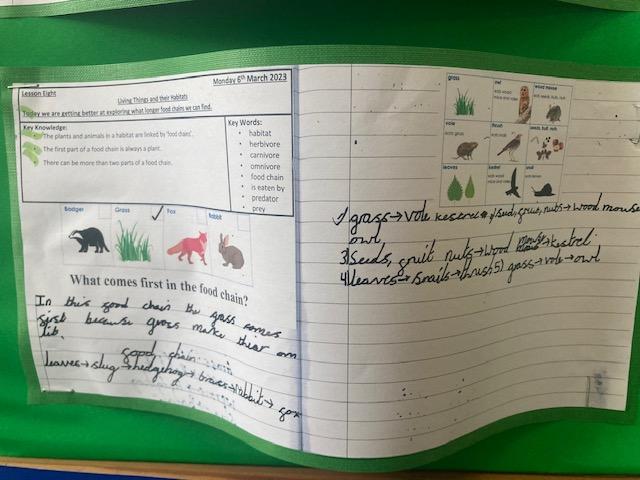 Lesson Eight
Monday 6th March 2023
Living Things and their Habitats
Today we are getting better at exploring what longer food chains we can find.
Key Knowledge:
The plants and animals in a habitat are linked by 'food chains'.
The first part of a food chain is always a plant.
There can be more than two parts of a food chain.
Key Words:
• habitat
• herbivore
• carnivore
• omnivore
• food chain
• is eaten by
• predator
• prey
Badger Grass Fox Rabbit
What comes first in the food chain?
In this food chain the grass comes
first because grass make thier own
food chain
leaves→slug→hedgehog→ →rabbit→ fox
grass owl wood mouse
vole thrush seeds, fruit, nuts
eats grass
leaves kestrel snail
1) grass→vole kestrel seed, nuts→wood mouse
owl
3) Seeds, fruit nuts→wood mouse→kestrel
4) leaves→snails→thrush 5) grass→vole→owl